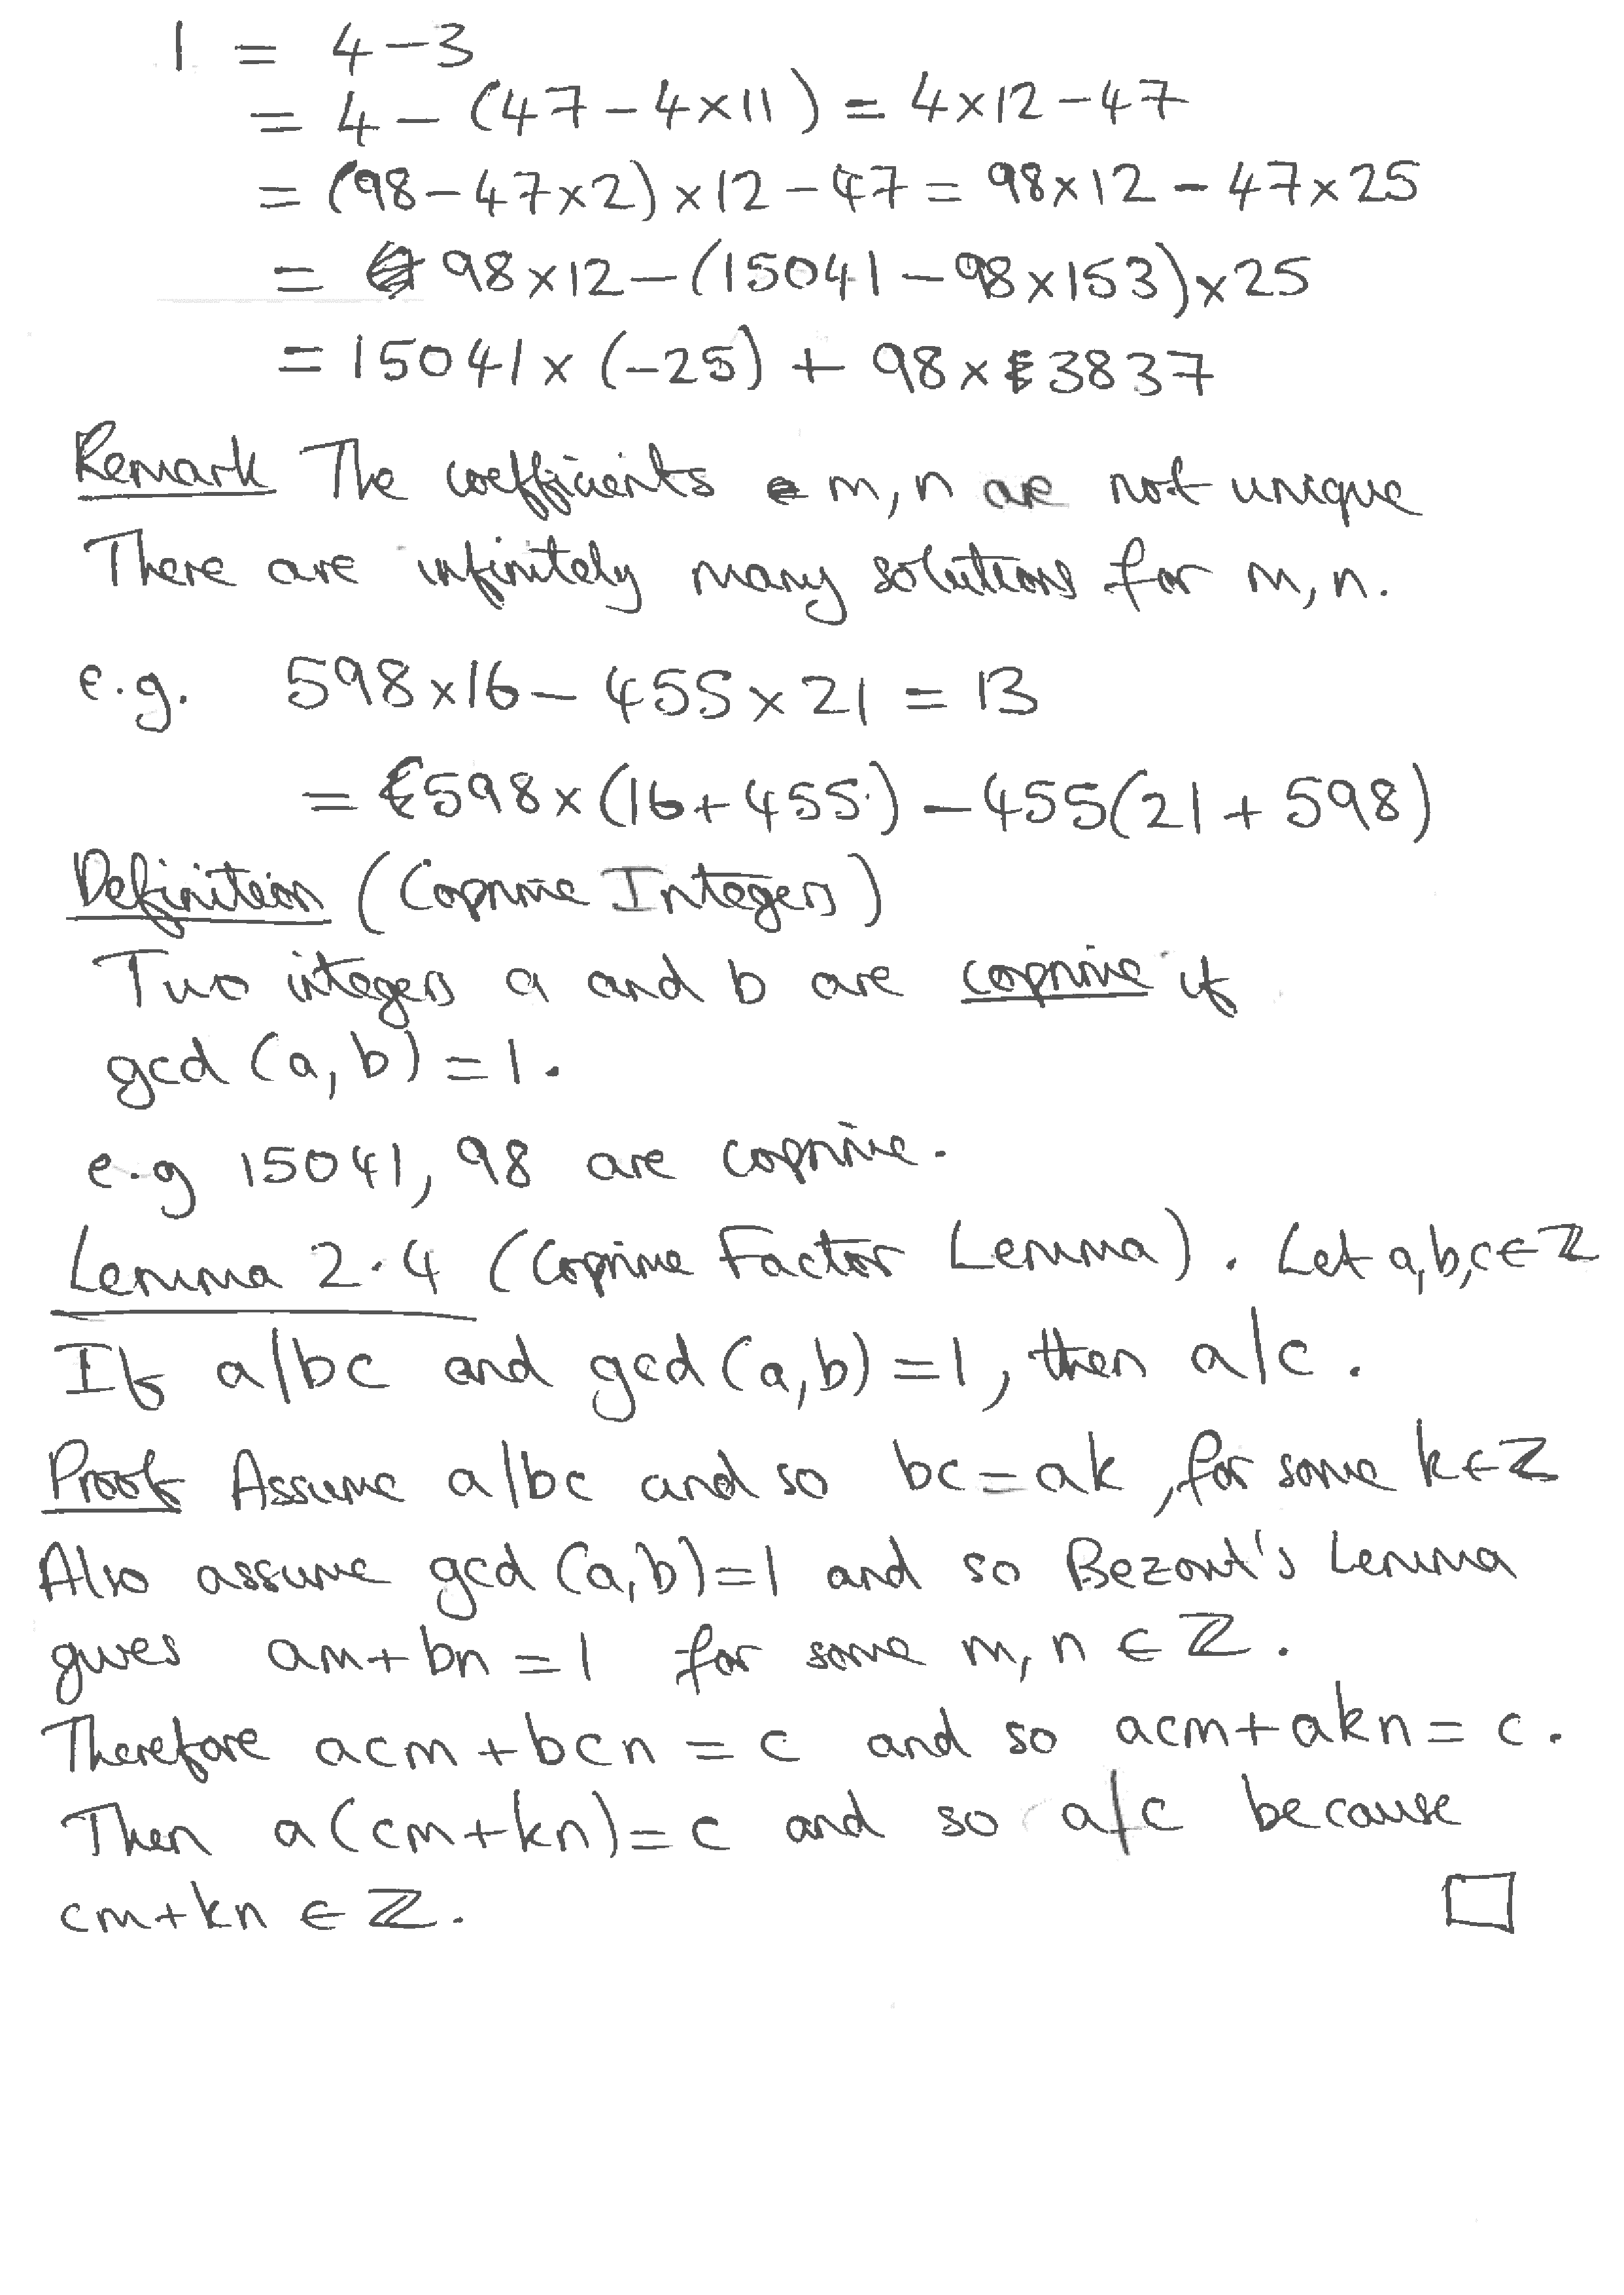 1 = 4-3
= 4 - (47 - 4×11) = 4×12 - 47
= (98 - 47×2) ×12 - 47 = 98×12 - 47×25
= 98×12 - (15041 - 98×153)×25
= 15041× (-25) + 98× 3837
Remark The coefficients m,n are not unique
There are infinitely many solutions for m,n.
e.g. 598×16 - 455×21 = 13
= 598×(16+455) - 455(21+598)
Definition (Coprime Integers)
Two integers a and b are coprime if
gcd (a,b) = 1.
e.g 15041, 98 are coprime.
Lemma 2.4 (Coprime Factor Lemma). Let a,b,c∈ℤ
If a|bc and gcd(a,b)=1, then a|c.
Proof Assume a|bc and so bc=ak, for some k∈ℤ
Also assume gcd (a,b)=1 and so Bezout's Lemma
gives am+bn=1 for some m,n ∈ ℤ.
Therefore acm + bcn = c and so acm+akn= c.
Then a(cm+kn)=c and so a|c because
cm+kn ∈ ℤ. □